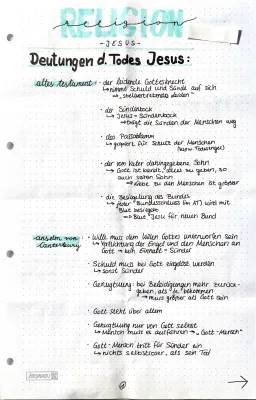 RELIGION
religion
- JESUS -
Deutungen d. Todes Jesus:
altes testament · der leidende Gottesknecht
↳ nimmt Schuld und Sünde auf sich
→ „stellvertretendes Leiden"
· der Sündenbock
↳ Jesus = Sündenbock
→ trägt die Sünden der Menschen weg
· das Passahlamm
↳ geopfert für Schuld der Menschen
· der vom Vater dahingegebene Sohn
↳ Gott ist bereit, alles zu geben, so
auch seinen Sohn
→ Liebe zu den Menschen ist größer
· die Besiegelung des Bundes
↳ Bundesschluss (im AT) wird mit
Blut besiegelt
→ Blut Jesu für neuen Bund
anselm von
Canterbury
· Wille muss dem Willen Gottes unterworfen sein
↳ Verpflichtung der Engel und der Menschen an
Gott → kein Einhalt = Sünde
· Schuld muss bei Gott eingelöst werden
↳ sonst Sünder
· Genugtuung: bei Beleidigungen mehr zurück-
geben, als bekommen
→ muss größer als Gott sein
· Gott steht über allem
· Genugtuung nur von Gott selbst
Mensch muss es ausführen → „Gott-Mensch"
· Gott-Mensch tritt für Sünder ein
↳ nichts selbstloser, als sein Tod